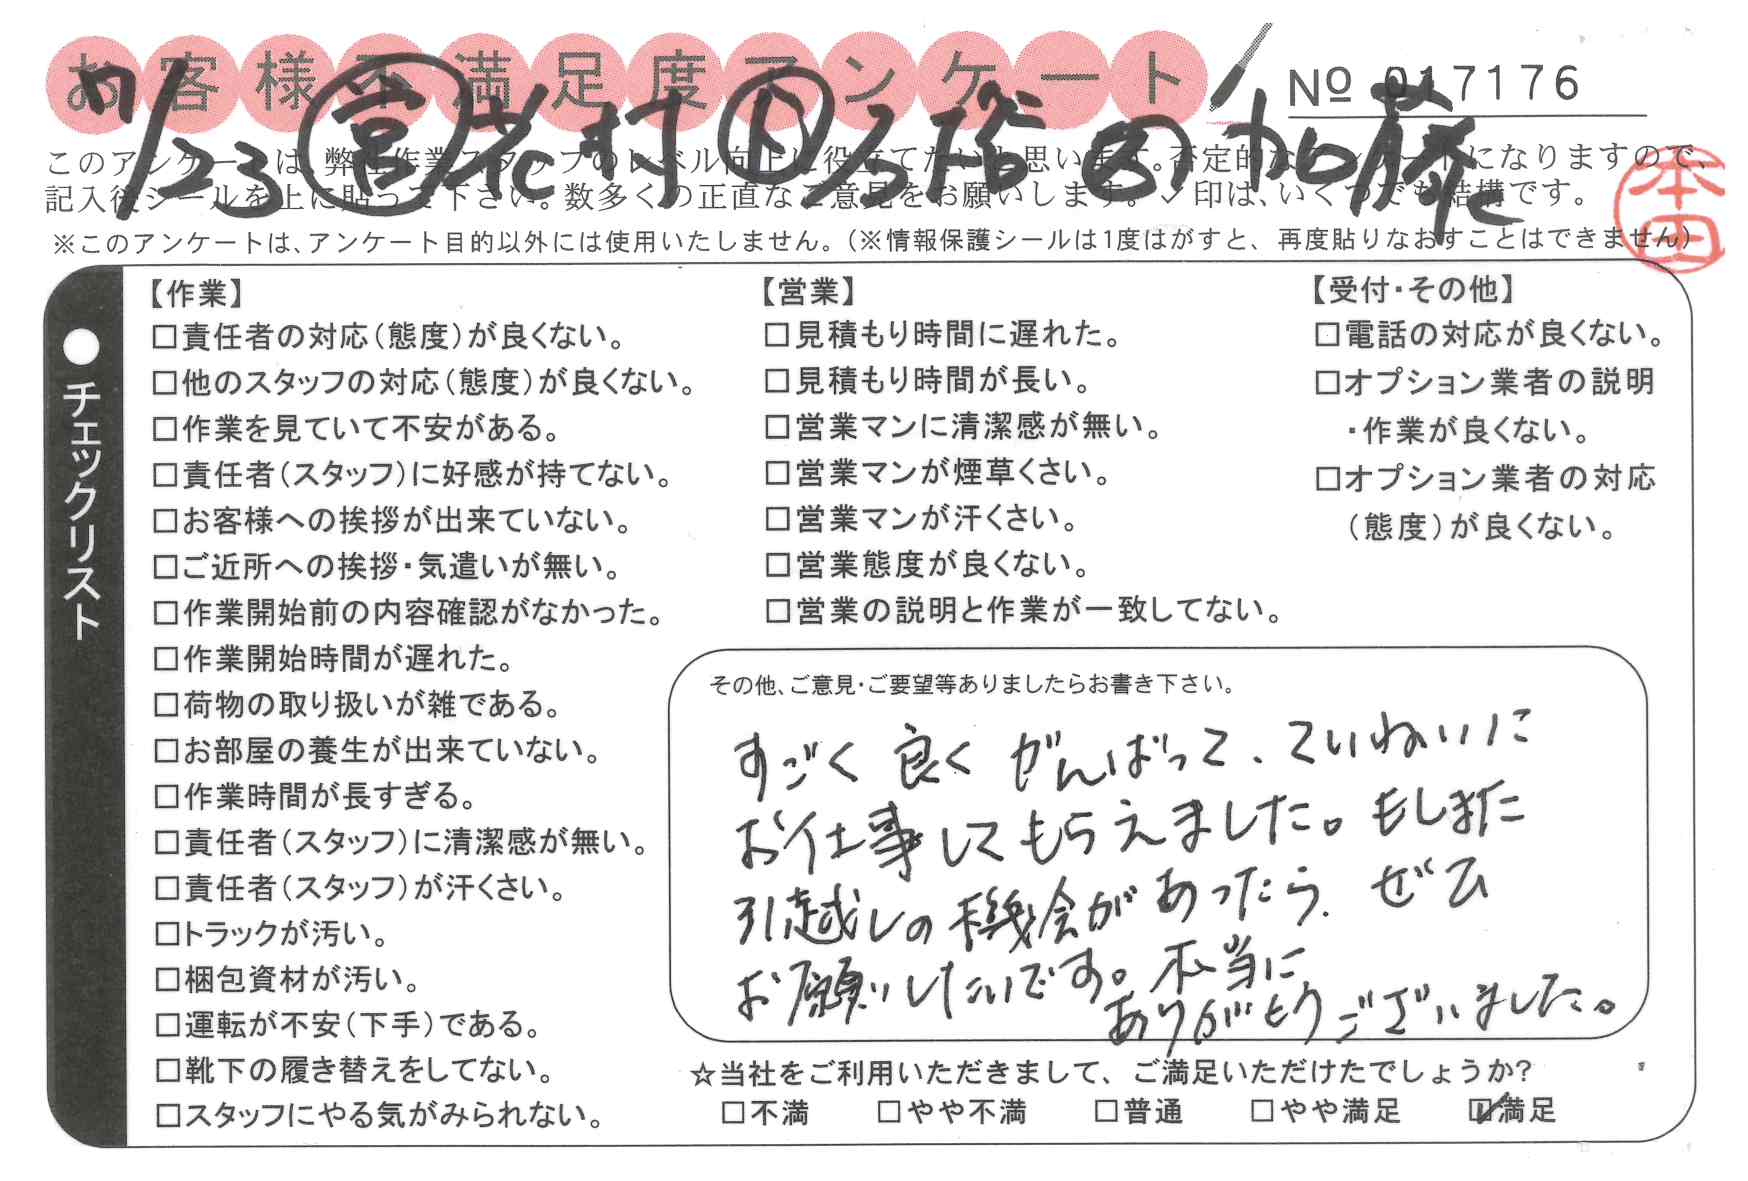 お客様不満足度アンケート
№ 017176
11/23 営 花村 加藤
このアンケートは、弊社作業スタッフのレベル向上に役立てたいと思います。否定的なアンケートになりますので、
記入後シールを上に貼って下さい。数多くの正直なご意見をお願いします。✓印は、いくつでも結構です。
※このアンケートは、アンケート目的以外には使用いたしません。(※情報保護シールは1度はがすと、再度貼りなおすことはできません)
本田
●チェックリスト
【作業】
□責任者の対応(態度)が良くない。
□他のスタッフの対応(態度)が良くない。
□作業を見ていて不安がある。
□責任者(スタッフ)に好感が持てない。
□お客様への挨拶が出来ていない。
□ご近所への挨拶・気遣いが無い。
□作業開始前の内容確認がなかった。
□作業開始時間が遅れた。
□荷物の取り扱いが雑である。
□お部屋の養生が出来ていない。
□作業時間が長すぎる。
□責任者(スタッフ)に清潔感が無い。
□責任者(スタッフ)が汗くさい。
□トラックが汚い。
□梱包資材が汚い。
□運転が不安(下手)である。
□靴下の履き替えをしてない。
□スタッフにやる気がみられない。
【営業】
□見積もり時間に遅れた。
□見積もり時間が長い。
□営業マンに清潔感が無い。
□営業マンが煙草くさい。
□営業マンが汗くさい。
□営業態度が良くない。
□営業の説明と作業が一致してない。
【受付・その他】
□電話の対応が良くない。
□オプション業者の説明
・作業が良くない。
□オプション業者の対応
(態度)が良くない。
その他、ご意見・ご要望等ありましたらお書き下さい。
すごく良くがんばって、ていねいに
お仕事してもらえました。もしまた
引越しの機会があったら、ぜひ
お願いしたいです。本当に
ありがとうございました。
☆当社をご利用いただきまして、ご満足いただけたでしょうか?
□不満 □やや不満 □普通 □やや満足 ☑満足